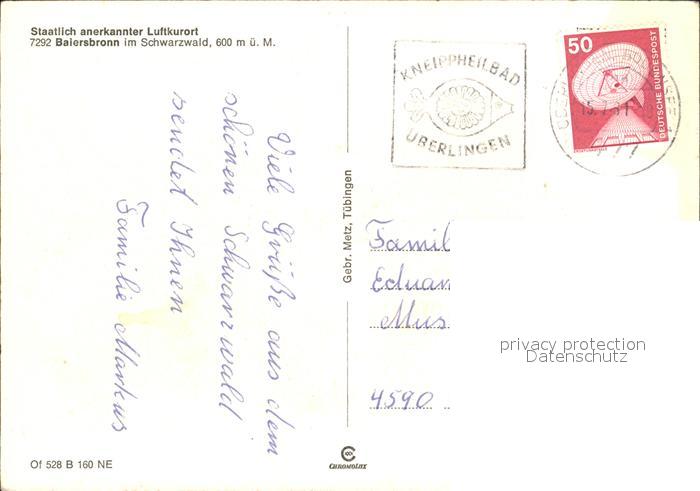 Staatlich anerkannter Luftkurort
7292 Baiersbronn im Schwarzwald, 600 m ü. M.
Viele Grüße aus dem
schönen Schwarzwald
sendet Ihnen
Familie Markus
Of 528 B 160 NE
Gebr. Metz, Tübingen
CHROMOLUX
KNEIPPHEILBAD
ÜBERLINGEN
50
DEUTSCHE BUNDESPOST
Famil
Eduar
Mus
4590
privacy protection
Datenschutz